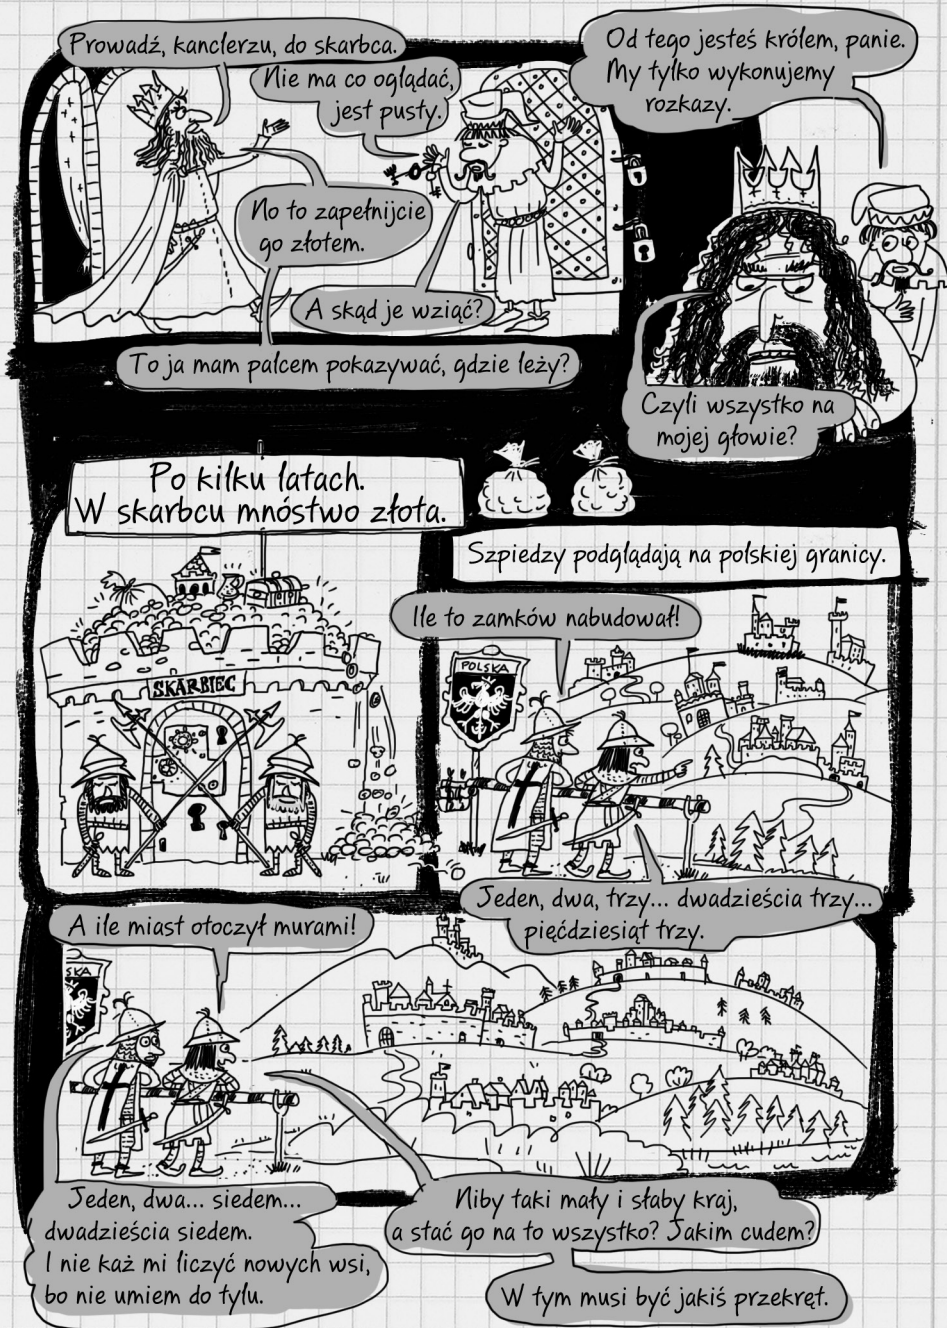 Prowadź, kanclerzu, do skarbca.
Nie ma co oglądać,
jest pusty.
No to zapełnijcie
go złotem.
A skąd je wziąć?
To ja mam palcem pokazywać, gdzie leży?
Od tego jesteś królem, panie.
My tylko wykonujemy
rozkazy.
Czyli wszystko na
mojej głowie?
Po kilku latach.
W skarbcu mnóstwo złota.
SKARBIEC
Szpiedzy podglądają na polskiej granicy.
Ile to zamków nabudował!
POLSKA
Jeden, dwa, trzy... dwadzieścia trzy...
pięćdziesiąt trzy.
A ile miast otoczył murami!
SKA
Jeden, dwa... siedem...
dwadzieścia siedem.
I nie każ mi liczyć nowych wsi,
bo nie umiem do tylu.
Niby taki mały i słaby kraj,
a stać go na to wszystko? Jakim cudem?
W tym musi być jakiś przekręt.